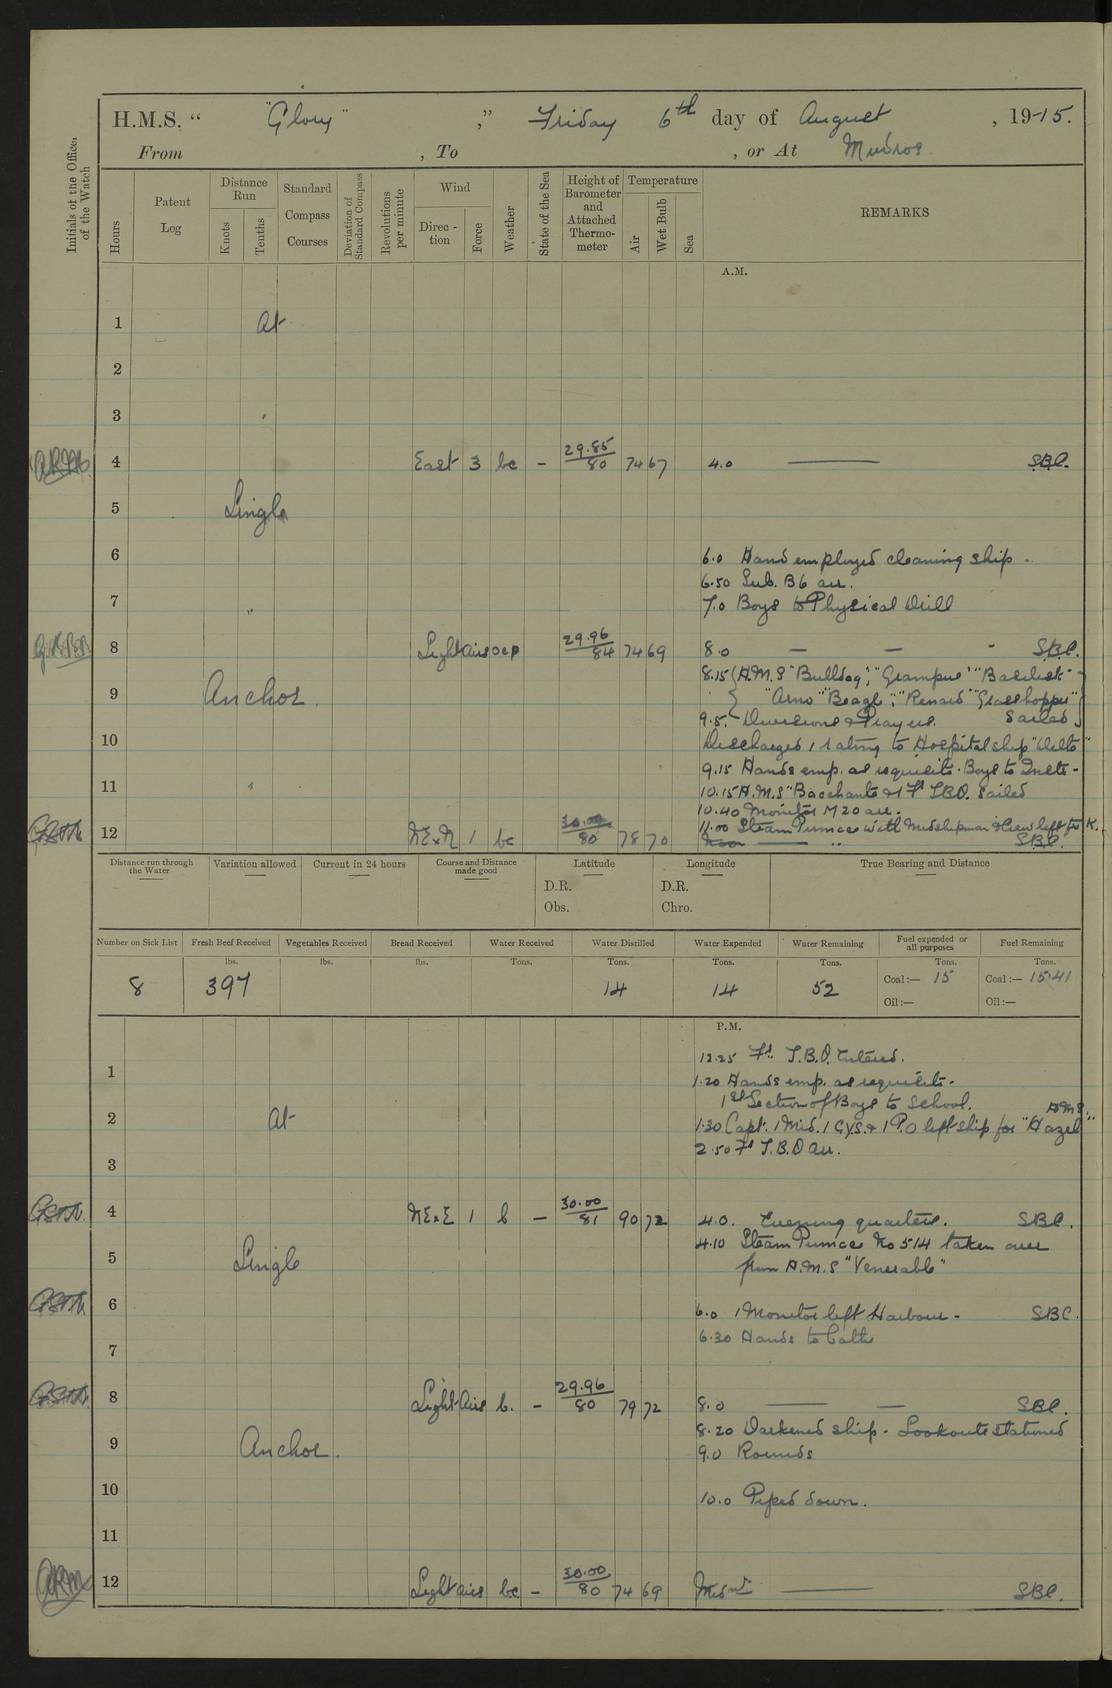 H.M.S. “ "Glory" ,” Friday 6th day of August , 1915.
From , To , or At Mudros.
Initials of the Officer of the Watch
Hours
Patent Log
Distance Run
Knots
Tenths
Standard Compass Courses
Deviation of Standard Compass
Revolutions per minute
Wind
Direc-tion
Force
Weather
State of the Sea
Height of Barometer and Attached Thermo-meter
Temperature
Air
Wet Bulb
Sea
REMARKS
A.M.
1 At
2
3
4 East 3 bc - 29.85/80 74 67 4.0 —— SBC.
5 Single
6 6.0 Hand employed cleaning ship.
6.50 Sub. B6 arr.
7 7.0 Boys to Physical Drill
8 Light airs ocp 29.96/84 74 69 8.0 — — - SBC.
8.15 H.M.S "Bulldog", "Grampus" "Basilisk"
9 Anchor. "Arno" "Beagle", "Renard" "Grasshopper"
9.5. Divisions & Prayers. Sailed
10 Discharged 1 rating to Hospital ship "Delta"
9.15 Hands emp. as requisite. Boys to Insts-
11 10.15 H.M.S "Bacchante & 1 Fr T.B.D. sailed
10.40 Monitor M20 arr.
11.00 Steam Pinnace with Midshipman & Crew left for K.
12 NExN 1 bc 30.00/80 78 70 Noon —— " SBC.
Distance run through the Water
Variation allowed
Current in 24 hours
Course and Distance made good
Latitude
D.R.
Obs.
Longitude
D.R.
Chro.
True Bearing and Distance
Number on Sick List
Fresh Beef Received
Vegetables Received
Bread Received
Water Received
Water Distilled
Water Expended
Water Remaining
Fuel expended or all purposes
Fuel Remaining
lbs. lbs. lbs. Tons. Tons. Tons. Tons. Tons. Tons.
8 397 14 14 52 Coal:— 15 Coal:— 1541
Oil:— Oil:—
P.M.
12.25 Fr. T.B.D. Entered.
1 1.20 Hands emp. as requisite.
1st Section of Boys to School. HMS
2 At 1.30 Capt. 1 Mid. 1 G.Y.S. & 1 P.O left ship for "Hazel"
2.50 Fr T.B.D arr.
3
4 NExE 1 b - 30.00/81 90 72 4.0. Evening quarters. SBC.
4.10 Steam Pinnace No 514 taken over
5 Single from H.M.S "Venerable"
6 6.0 1 Monitor left Harbour - SBC.
6.30 Hands to bathe
7
8 Light Airs b. - 29.96/80 79 72 8.0 —— — SBC.
8.20 Darkened ship - Lookouts stationed
9 Anchor. 9.0 Rounds
10 10.0 Piped down.
11
12 Light airs bc - 30.00/80 74 69 Midnt —— SBC.